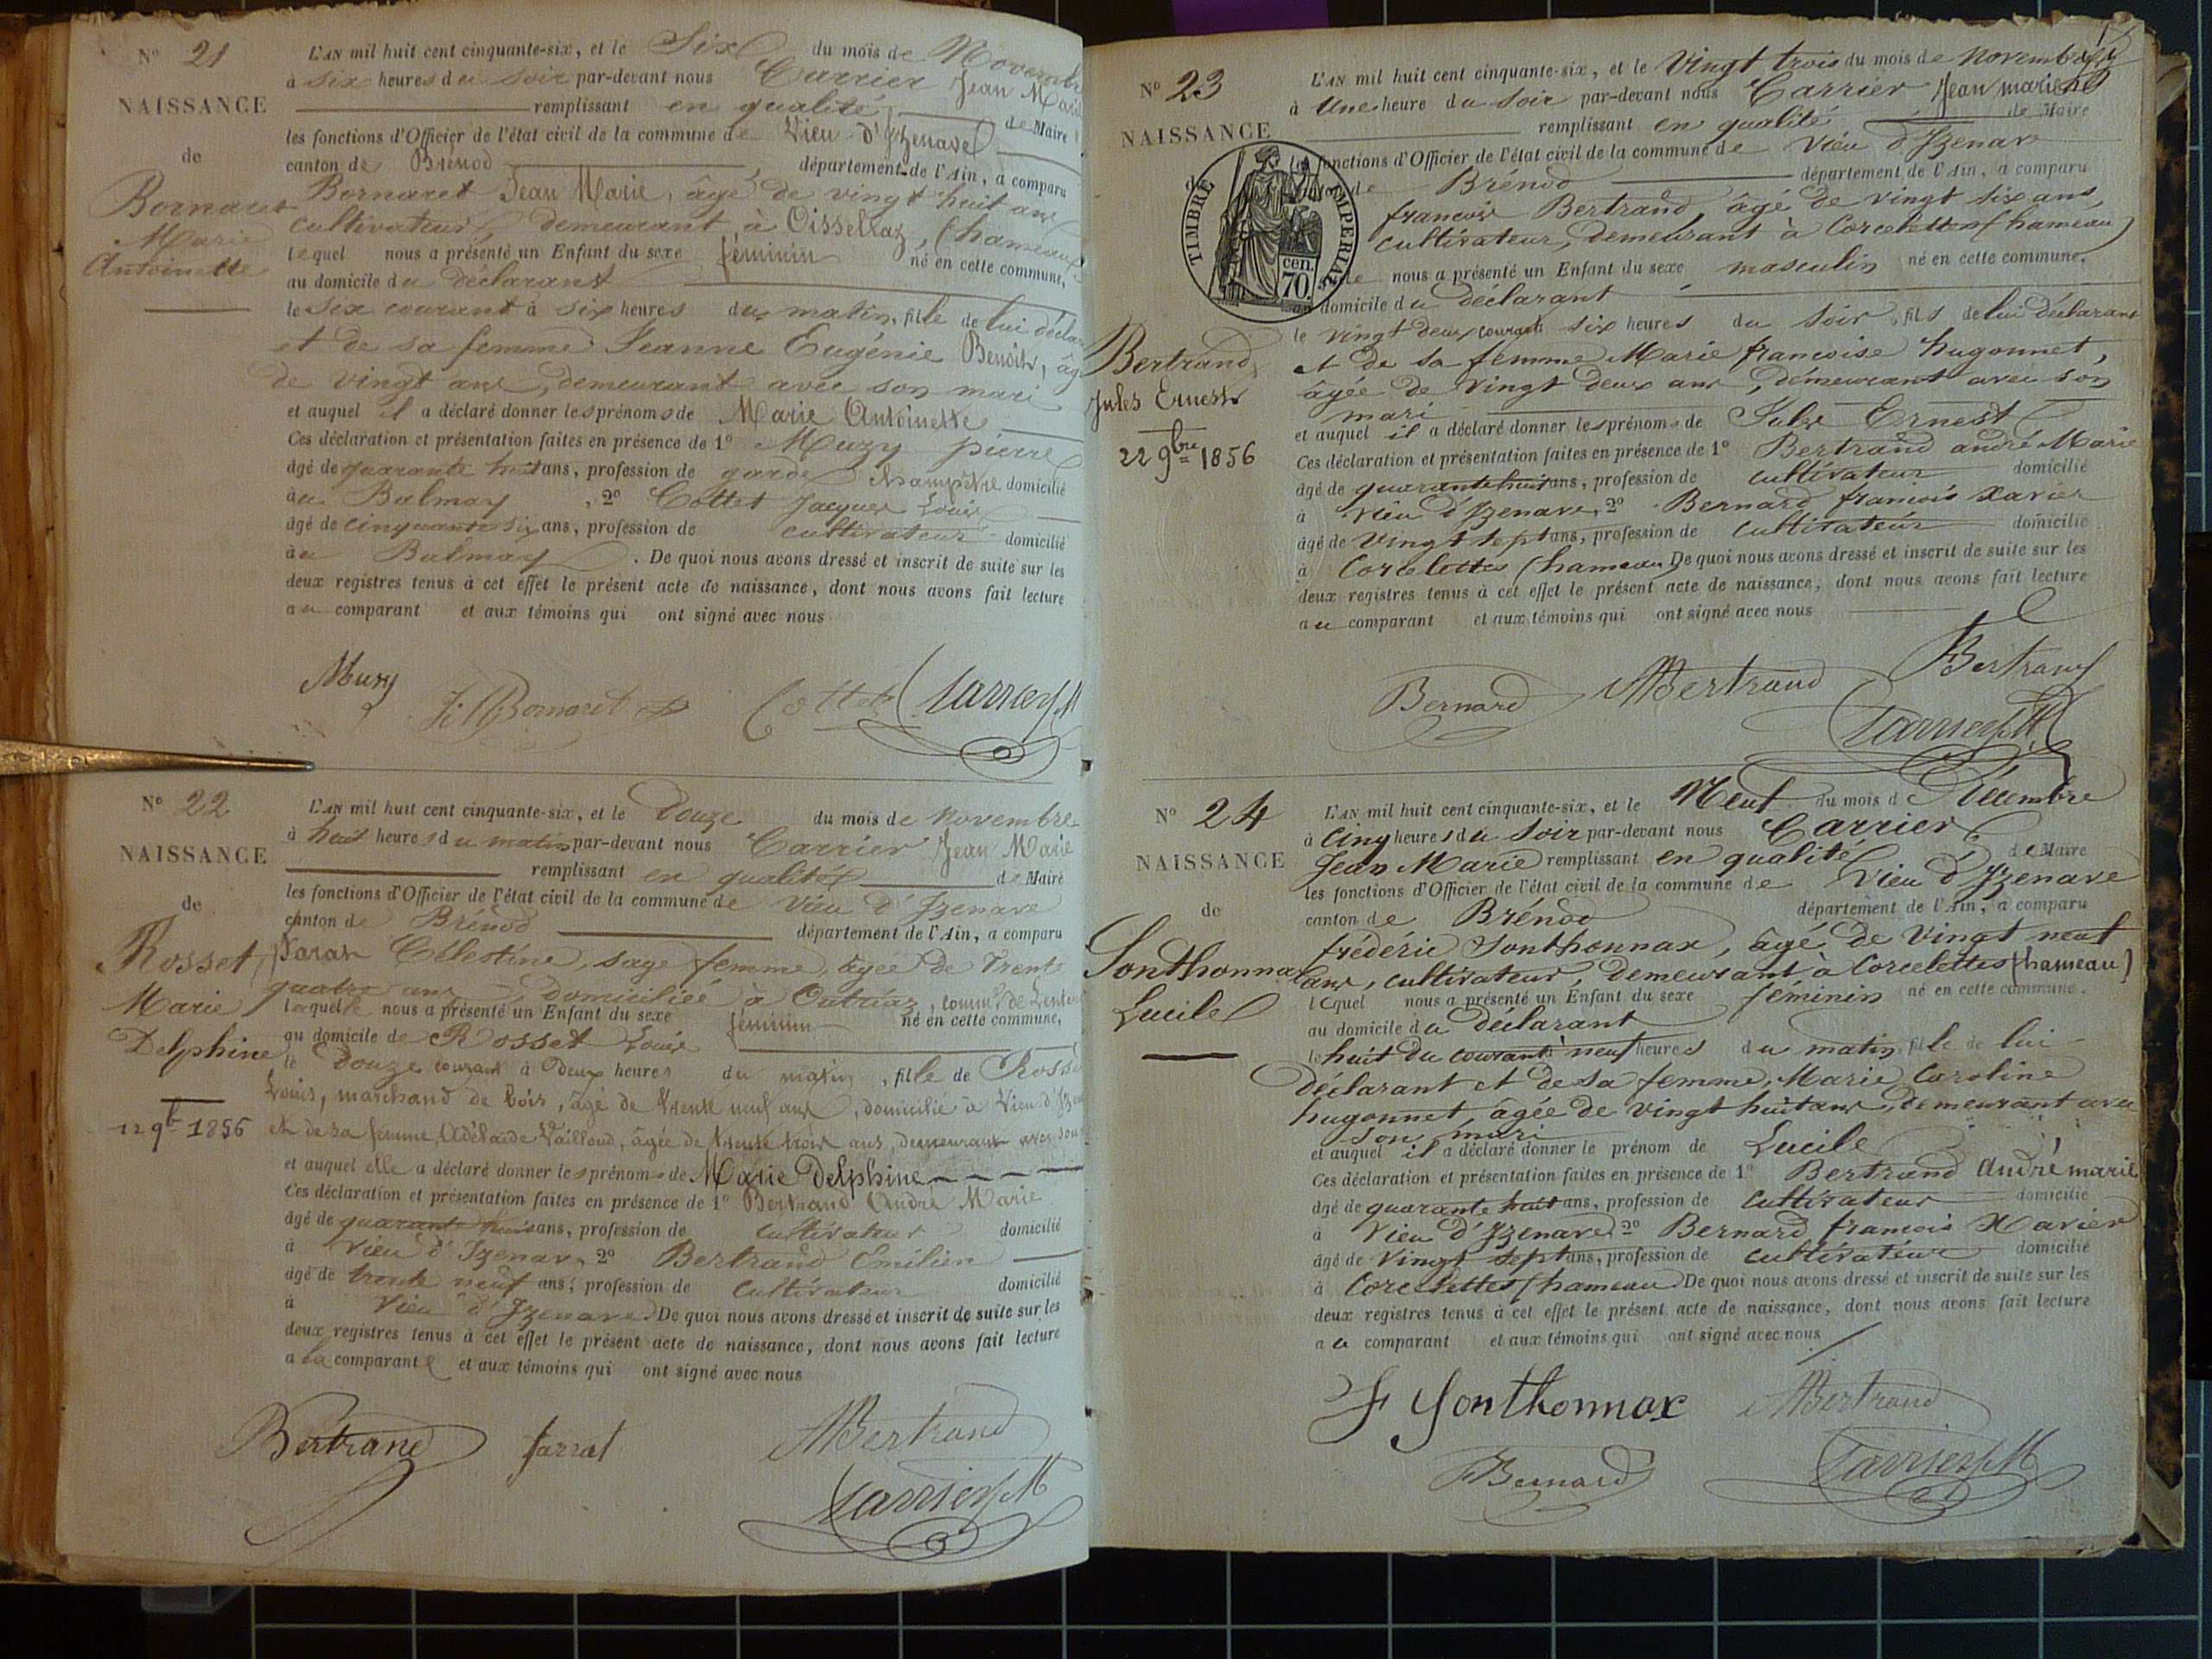 N° 21
NAISSANCE
de
Bornaret
Marie
Antoinette
L'AN mil huit cent cinquante-six, et le Six du mois de Novembre
à six heures du soir par-devant nous Carrier Jean Marie
remplissant en qualité de Maire
les fonctions d'Officier de l'état civil de la commune de Vieu d'Izenave
canton de Brénod, département de l'Ain, a comparu
Bornaret Jean Marie, âgé de vingt huit ans
cultivateur, demeurant à Oisselaz, (hameau)
lequel nous a présenté un Enfant du sexe féminin né en cette commune,
au domicile du déclarant
le six courant à six heures du matin, fille de lui déclarant
et de sa femme Jeanne Eugénie Benoit, âgée
de vingt ans, demeurant avec son mari
et auquel il a déclaré donner les prénoms de Marie Antoinette
Ces déclaration et présentation faites en présence de 1° Muzy pierre
âgé de quarante huit ans, profession de garde champêtre domicilié
au Balmay, 2° Cottet Jacques Louis
âgé de cinquante six ans, profession de cultivateur domicilié
au Balmay. De quoi nous avons dressé et inscrit de suite sur les
deux registres tenus à cet effet le présent acte de naissance, dont nous avons fait lecture
au comparant et aux témoins qui ont signé avec nous
Muzy J. M. Bornaret Cottet Carrier J M
N° 22
NAISSANCE
de
Rosset,
Marie
Delphine
12 9b 1856
L'AN mil huit cent cinquante-six, et le Douze du mois de novembre
à huit heures du matin par-devant nous Carrier Jean Marie
remplissant en qualité de Maire
les fonctions d'Officier de l'état civil de la commune de Vieu d'Izenave
canton de Brénod département de l'Ain, a comparu
Célestine, sage femme, âgée de trente
quatre ans, domiciliée à Outriaz, comm. de
laquelle nous a présenté un Enfant du sexe féminin né en cette commune,
au domicile de Rosset Louis
le Douze courant à Deux heures du matin, fille de Rosset
Louis, marchand de bois, âgé de trente neuf ans, domicilié à Vieu d'Izenave
et de sa femme, Adélaïde Vailloud, âgée de trente trois ans, demeurant avec son
et auquel elle a déclaré donner les prénoms de Marie Delphine
Ces déclaration et présentation faites en présence de 1° Bertrand André Marie
âgé de quarante huit ans, profession de cultivateur domicilié
à Vieu d'Izenave, 2° Bertrand Emilien
âgé de trente neuf ans, profession de Cultivateur domicilié
à Vieu d'Izenave. De quoi nous avons dressé et inscrit de suite sur les
deux registres tenus à cet effet le présent acte de naissance, dont nous avons fait lecture
a la comparante et aux témoins qui ont signé avec nous
Bertrand farrat AMBertrand
Carrier J M
N° 23
NAISSANCE
TIMBRE IMPERIAL
70 cen.
Bertrand,
Jules Ernest
22 9bre 1856
L'AN mil huit cent cinquante-six, et le Vingt trois du mois de novembre
à Une heure du soir par-devant nous Carrier Jean marie
remplissant en qualité de Maire
les fonctions d'Officier de l'état civil de la commune de Vieu d'Izenave
Brénod département de l'Ain, a comparu
françois Bertrand, âgé de vingt six ans,
cultivateur, demeurant à Corcelettes (hameau)
nous a présenté un Enfant du sexe masculin né en cette commune,
au domicile du déclarant
le vingt deux courant six heures du soir, fils de lui déclarant
et de sa femme Marie françoise hugonnet,
âgée de vingt deux ans, demeurant avec son
mari
et auquel il a déclaré donner les prénoms de Jules Ernest
Ces déclaration et présentation faites en présence de 1° Bertrand andré Marie
âgé de quarante huit ans, profession de cultivateur domicilié
à Vieu d'Izenave, 2° Bernard francois Xavier
âgé de vingt sept ans, profession de cultivateur domicilié
à Corcelettes (hameau) De quoi nous avons dressé et inscrit de suite sur les
deux registres tenus à cet effet le présent acte de naissance, dont nous avons fait lecture
au comparant et aux témoins qui ont signé avec nous
Bernard AMBertrand Bertrand
Carrier J M
N° 24
NAISSANCE
de
Sonthonnax
Lucile
L'AN mil huit cent cinquante-six, et le Neuf du mois de Décembre
à Cinq heures du soir par-devant nous Carrier
Jean Marie remplissant en qualité de Maire
les fonctions d'Officier de l'état civil de la commune de Vieu d'Izenave
canton de Brénod département de l'Ain, a comparu
frédéric Sonthonnax, âgé de vingt neuf
ans, cultivateur, demeurant à Corcelettes (hameau)
lequel nous a présenté un Enfant du sexe féminin né en cette commune.
au domicile du déclarant
le huit du courant à neuf heures du matin, fille de lui
déclarant et de sa femme, Marie Caroline
hugonnet, âgée de vingt huit ans, demeurant avec
son mari
et auquel il a déclaré donner le prénom de Lucile
Ces déclaration et présentation faites en présence de 1° Bertrand André marie
âgé de quarante huit ans, profession de cultivateur domicilié
à Vieu d'Izenave 2° Bernard francois Xavier
âgé de vingt sept ans, profession de cultivateur domicilié
à Corcelettes (hameau) De quoi nous avons dressé et inscrit de suite sur les
deux registres tenus à cet effet le présent acte de naissance, dont nous avons fait lecture
au comparant et aux témoins qui ont signé avec nous
F Sonthonnax AMBertrand
Bernard Carrier J M